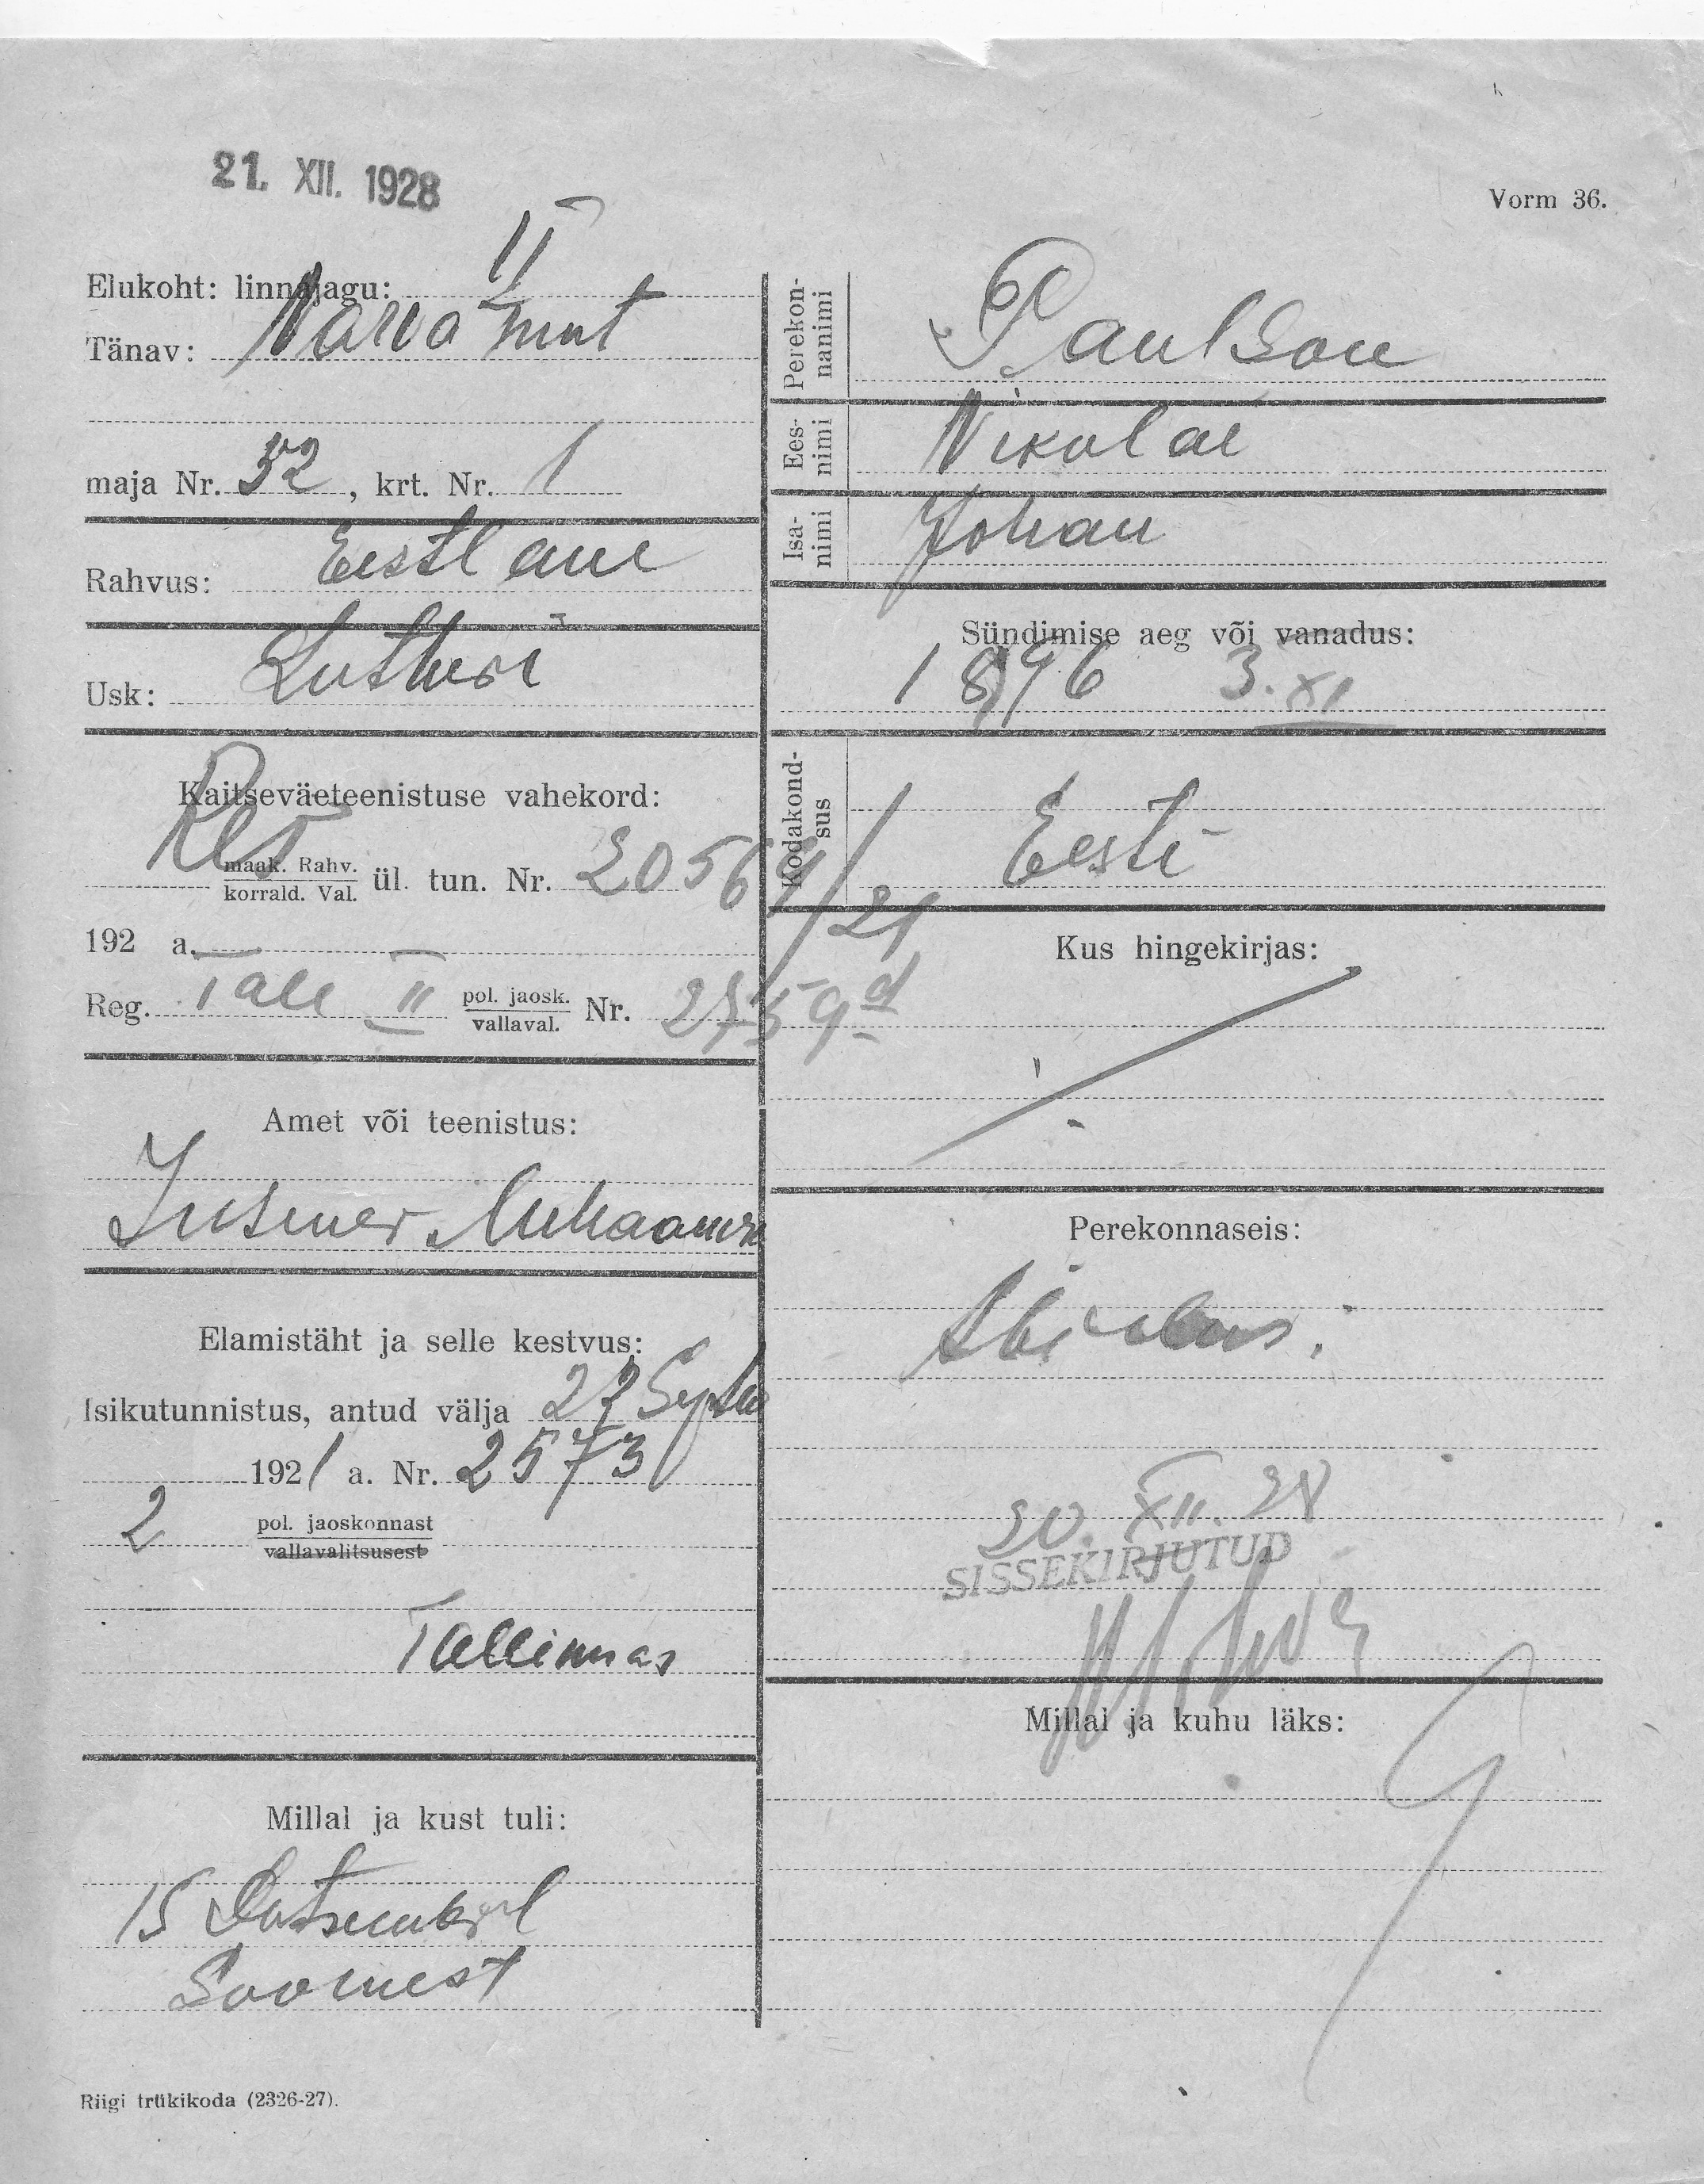 21. XII. 1928
Vorm 36.
Elukoht: linnajagu: II
Tänav: Narva mnt
maja Nr. 32, krt. Nr. 1
Rahvus: Eestlane
Usk: Lutheri
Kaitseväeteenistuse vahekord:
Res
maak. Rahv.
korrald. Val. ül. tun. Nr. 20564/21
192 a.
Reg. Tall II pol. jaosk.
vallaval. Nr. 2759
Amet või teenistus:
Insener Mehaanik
Elamistäht ja selle kestvus:
Isikutunnistus, antud välja 27 Septe
1921 a. Nr. 2573
2 pol. jaoskonnast
vallavalitsusest
Tallinnas
Millal ja kust tuli:
15 Detsembril
Soomest
Riigi trükikoda (2326-27).
Perekon-
nanimi
Paulson
Ees-
nimi
Nikolai
Isa-
nimi
Johan
Sündimise aeg või vanadus:
1896 3. XI
Kodakond-
sus
Eesti
Kus hingekirjas:
Perekonnaseis:
Abielus.
20. XII. 28
SISSEKIRJUTUD
Millal ja kuhu läks: